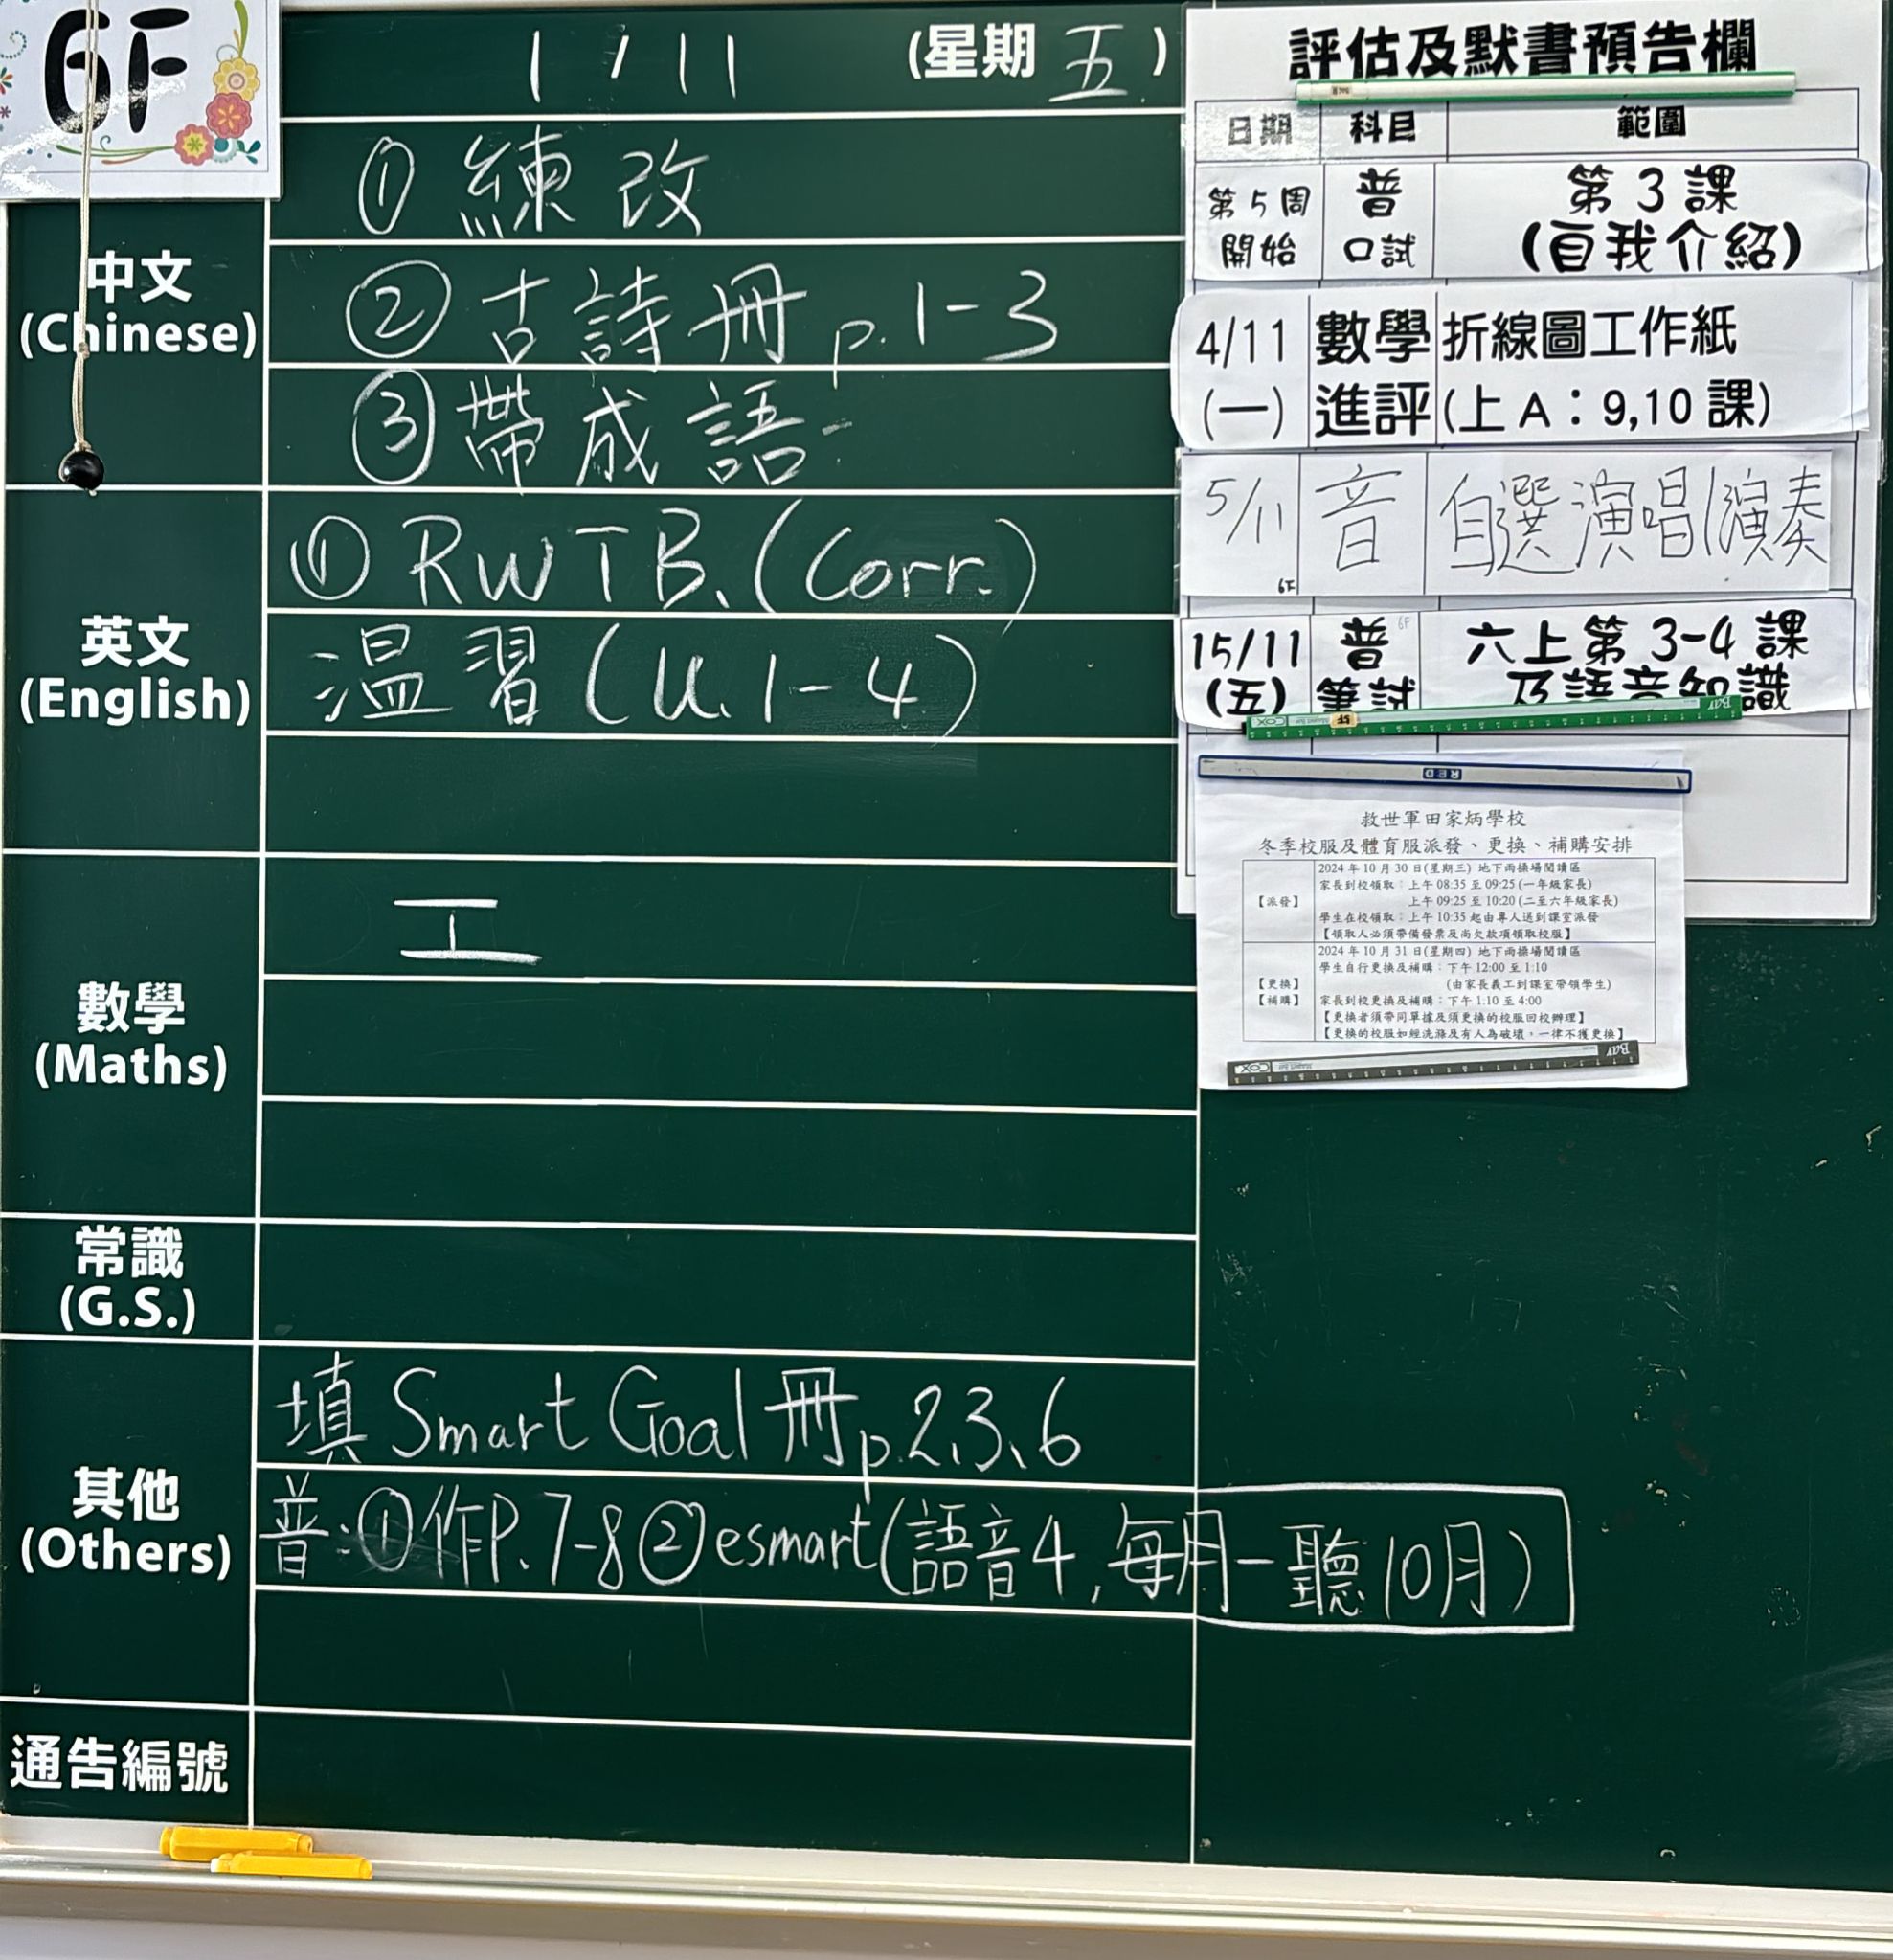 6F
1 / 11 (星期 五 )
中文
(Chinese)
① 練 改
② 古詩冊 p. 1-3
③ 帶成語
英文
(English)
① RWTB. (Corr.)
溫習 (U. 1-4)
數學
(Maths)
工
常識
(G.S.)
其他
(Others)
填 Smart Goal 冊 p.2、3、6
普:①作P.7-8②esmart(語音4,每月一聽10月)
通告編號
評估及默書預告欄
日期 科目 範圍
第5周 普 第3課
開始 口試 (自我介紹)
4/11 數學 折線圖工作紙
(一) 進評 (上A:9,10課)
5/11 音 自選演唱/演奏
6F
15/11 普 6F 六上第3-4課
(五) 筆試 及語音知識
BAY
COX
RED
救世軍田家炳學校
冬季校服及體育服派發、更換、補購安排
2024年10月30日(星期三) 地下雨操場閱讀區
家長到校領取:上午08:35至09:25(一年級家長)
【派發】 上午09:25至10:20(二至六年級家長)
學生在校領取:上午10:35起由專人送到課室派發
【領取人必須帶備發票及尚欠款項領取校服】
2024年10月31日(星期四) 地下雨操場閱讀區
學生自行更換及補購:下午12:00至1:10
【更換】 (由家長義工到課室帶領學生)
【補購】 家長到校更換及補購:下午1:10至4:00
【更換者須帶同單據及須更換的校服回校辦理】
【更換的校服如經洗滌及有人為破壞,一律不獲更換】
BAY
COX